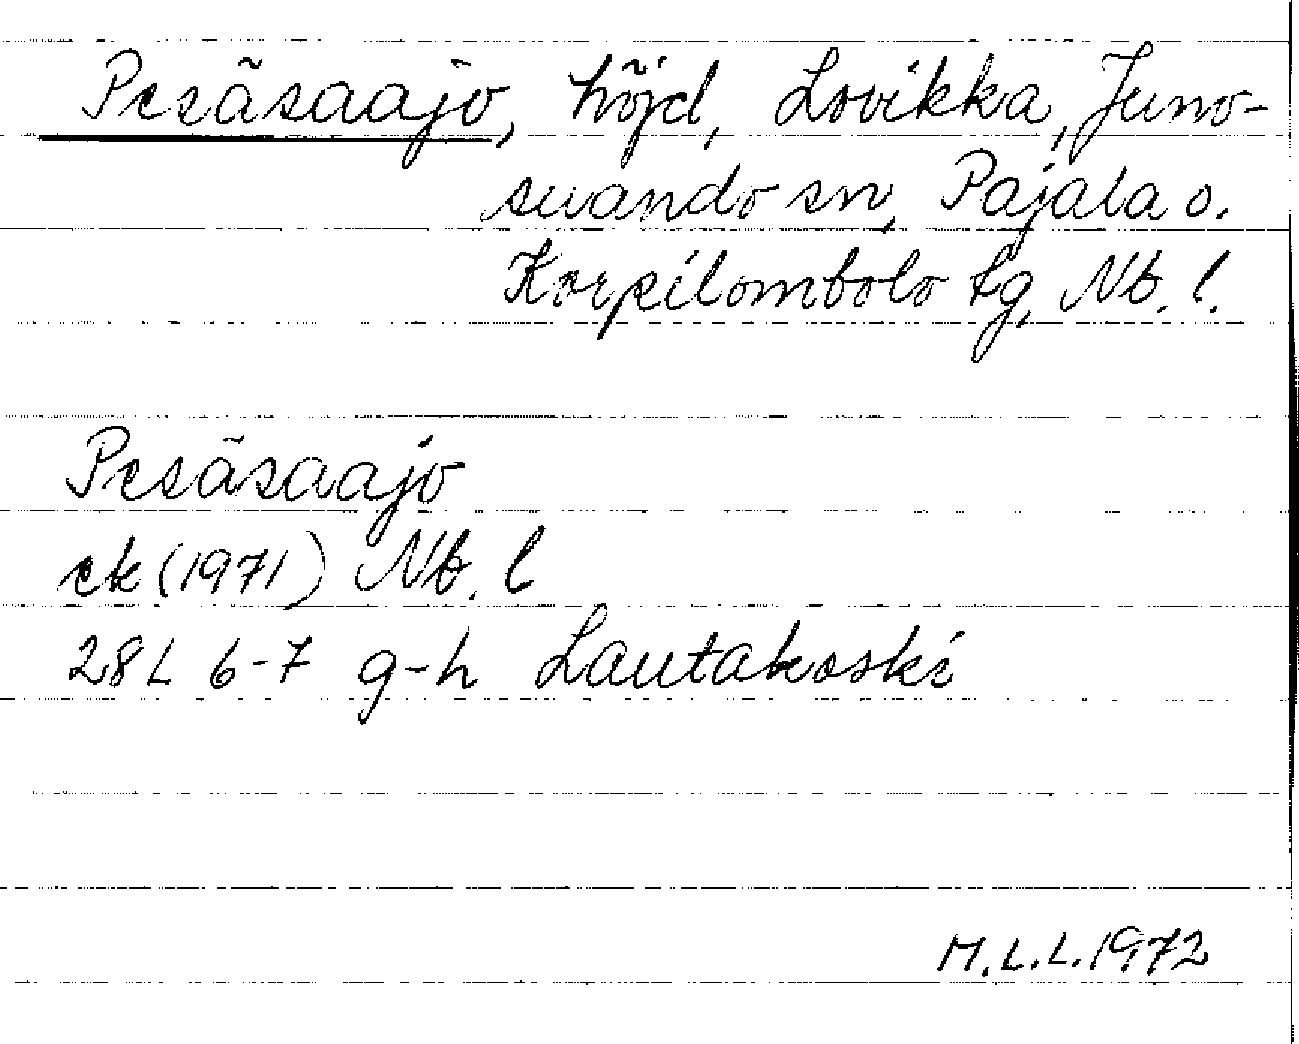 Pesäsaajo, höjd, Lovikka, Juno-
suando sn, Pajala o.
Korpilombolo tg, Nb. l.
Pesäsaajo
ek (1971) Nb. l
28L 6-7 g-h Lautakoski
M.L.L. 1972